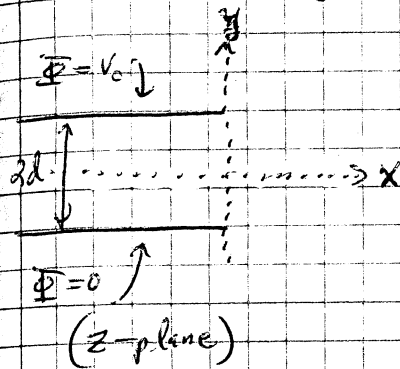 y
Φ = V₀
2d
x
Φ = 0
(z-plane)